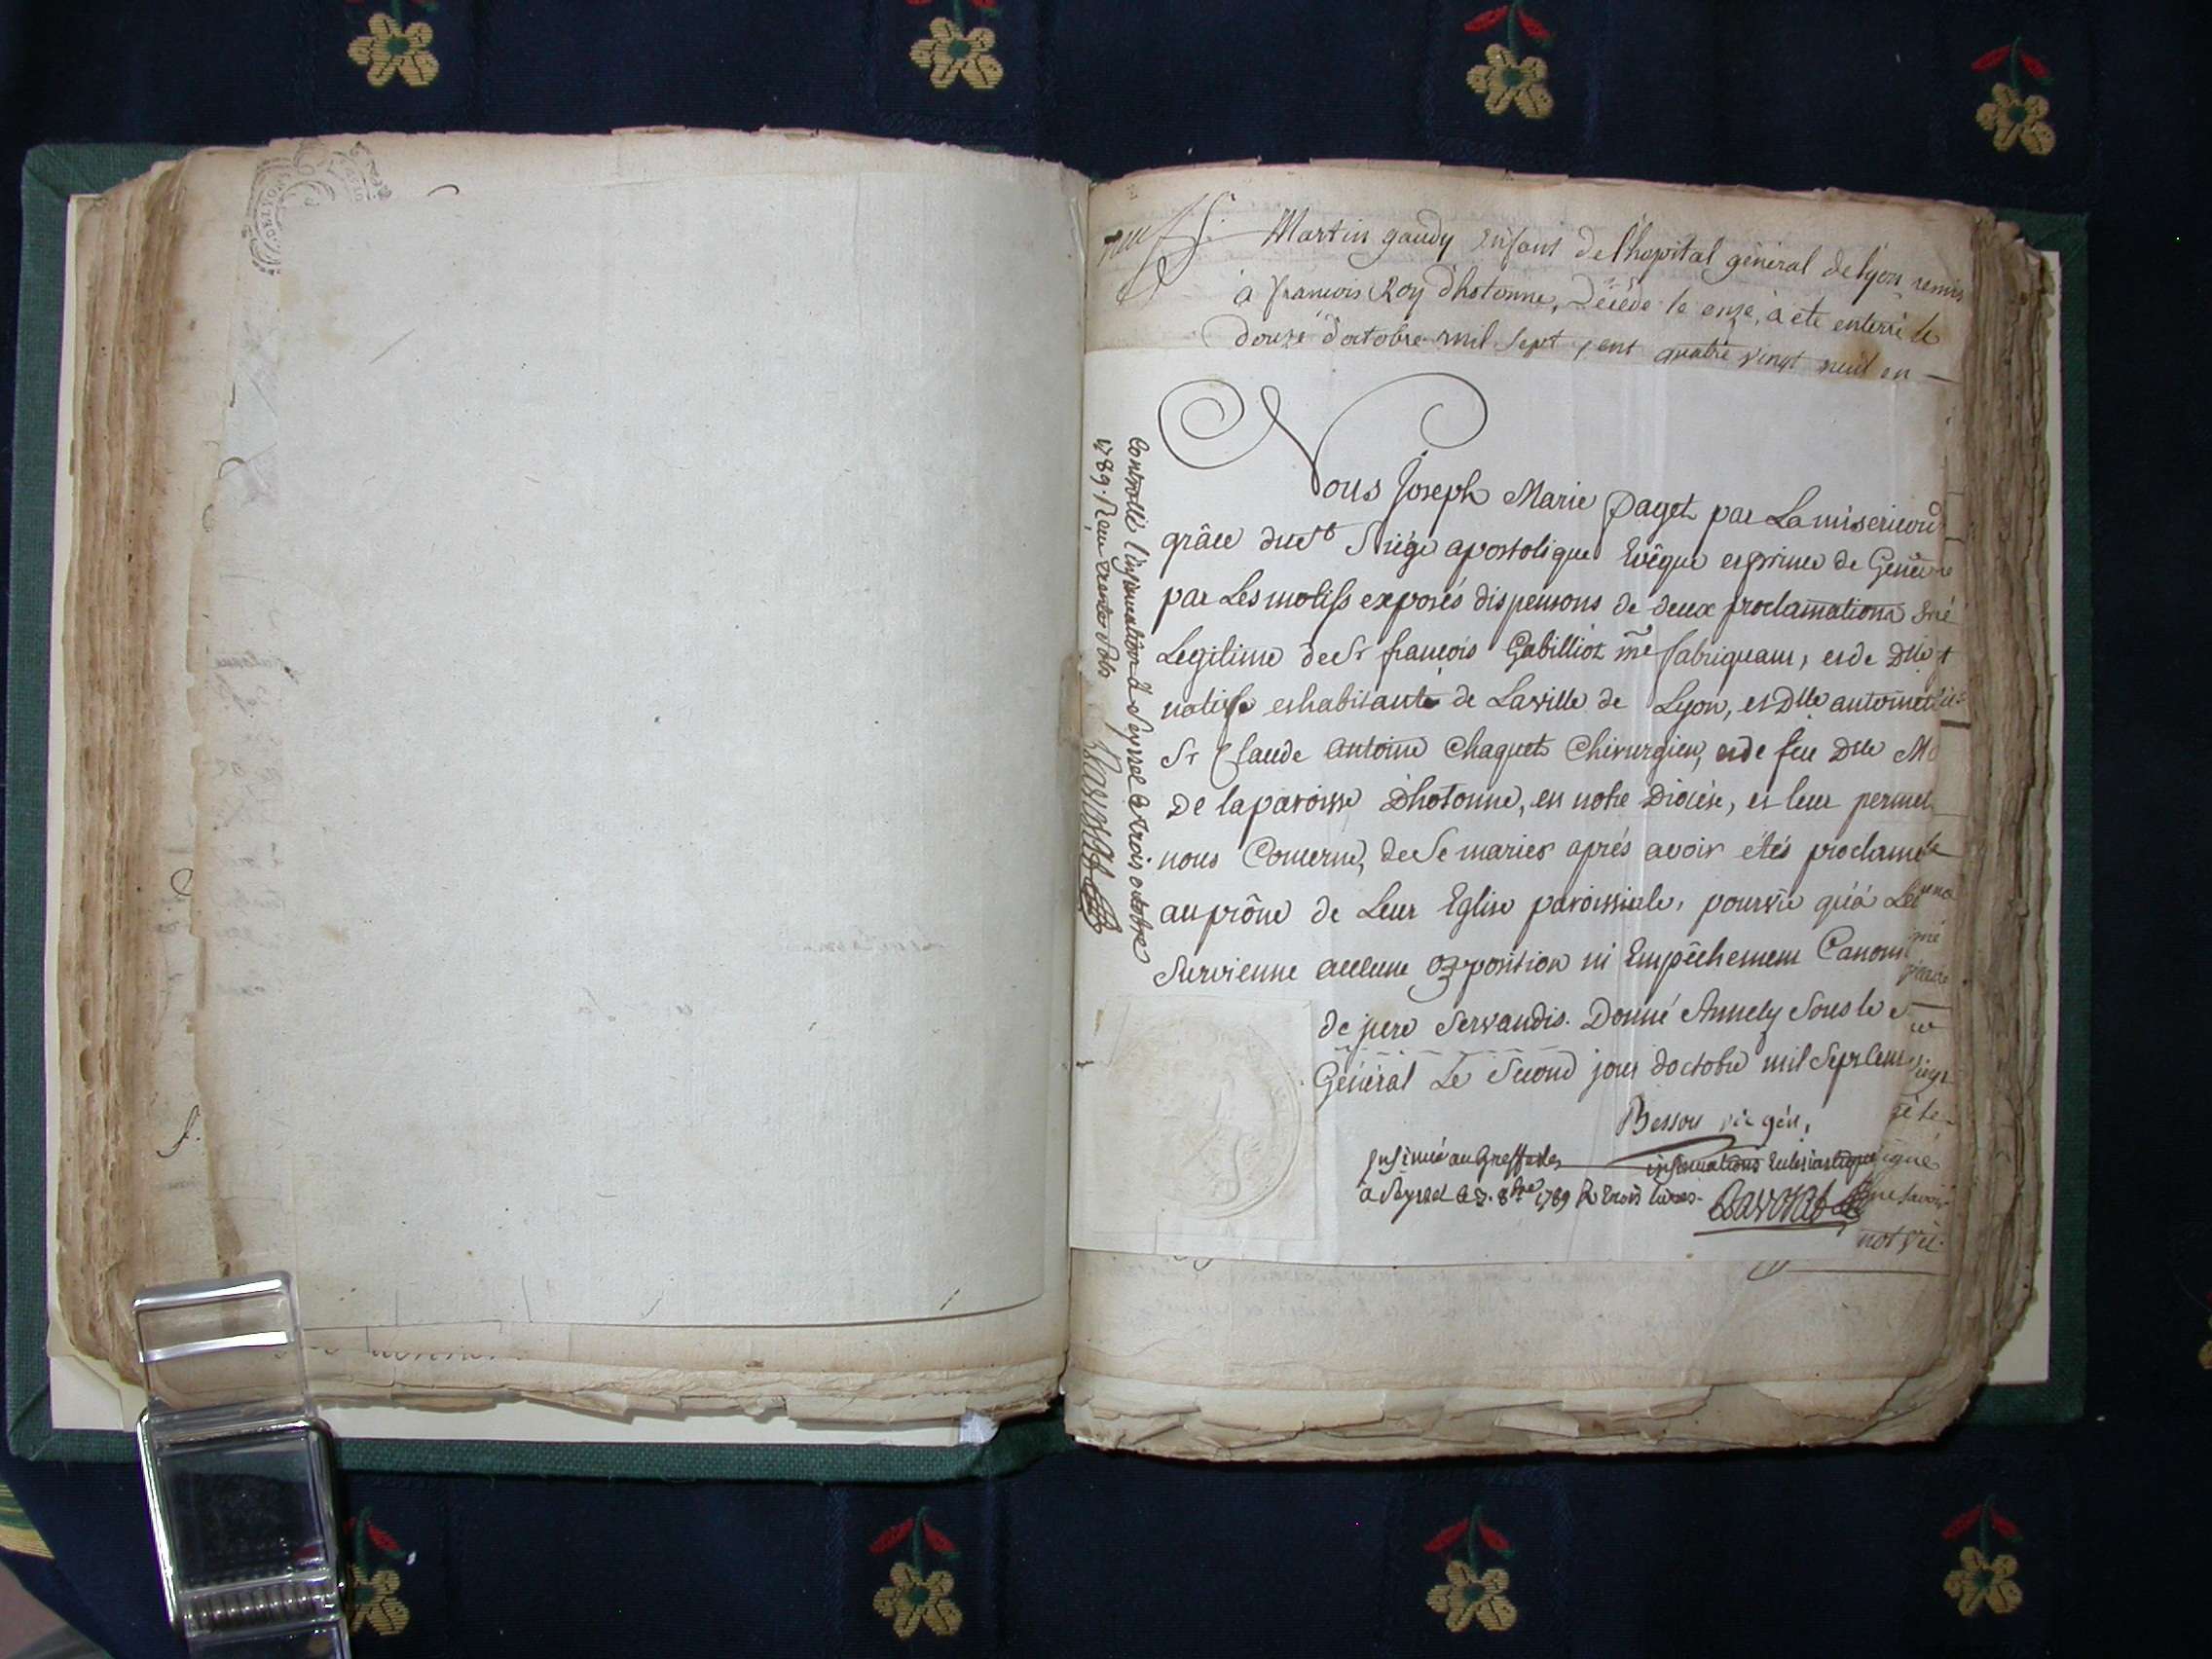 Martin gaudy enfant de l'hopital général de lyon remis
à francois Roy d'hotonne, décédé le onze, a été enterré le
douze d'octobre mil sept cent quatre vingt neuf en
Nous Joseph Marie Paget par La misericord
grâce du St Siége apostolique Evêque et prince de Genêve
par Les motifs exposés dispensons de deux proclamations
Legitime de Sr francois Gabilliot me fabriquant, et de Dlle
native et habitante de La ville de Lyon, et Dlle antoinet
Sr Claude antoine Chaquet Chirurgien, et de feu Dlle M
De la paroisse D'hotonne, en notre Diocése, et leur permet
nous Concerne, de Se marier aprés avoir étés proclamé
au prône de Leur Eglise paroissiale, pourvû qu'à
Survienne aucune opposition ni Empêchement Canoni
de jure Servandis. Donné Annecy Sous le S
Général Le Second jour d'octobre mil Sept Cent
Besson vic gén,
Insinué au Greffe des insinuations Eclesiastique
à Seyssel le 3. 8bre 1789 R trois livres.
Controllé l'insinuation à Seyssel le trois octobre
1789. Reçu trente sols